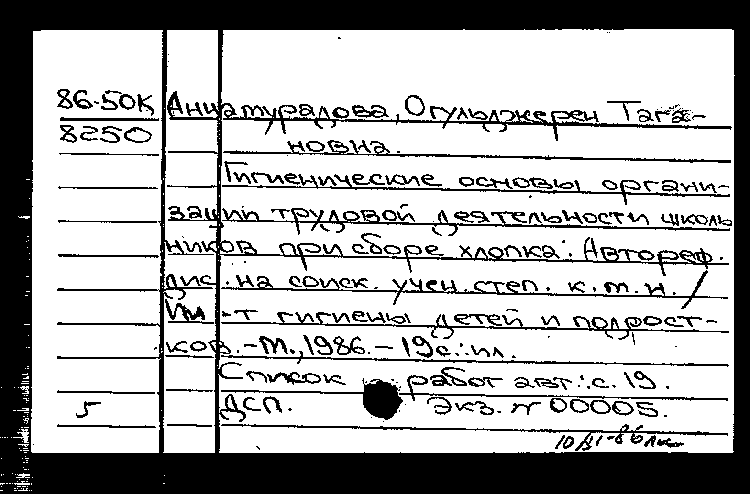 86-50К Аннамурадова, Огульджерен Тага-
8250 новна.
Гигиенические основы органи-
зации трудовой деятельности школь
ников при сборе хлопка: Автореф.
дис. на соиск. учен. степ. к.м.н. /
Ин-т гигиены детей и подрост-
ков. - М., 1986. - 19с.: ил.
Список работ авт.: с. 19.
5 ДСП. Экз. № 00005.